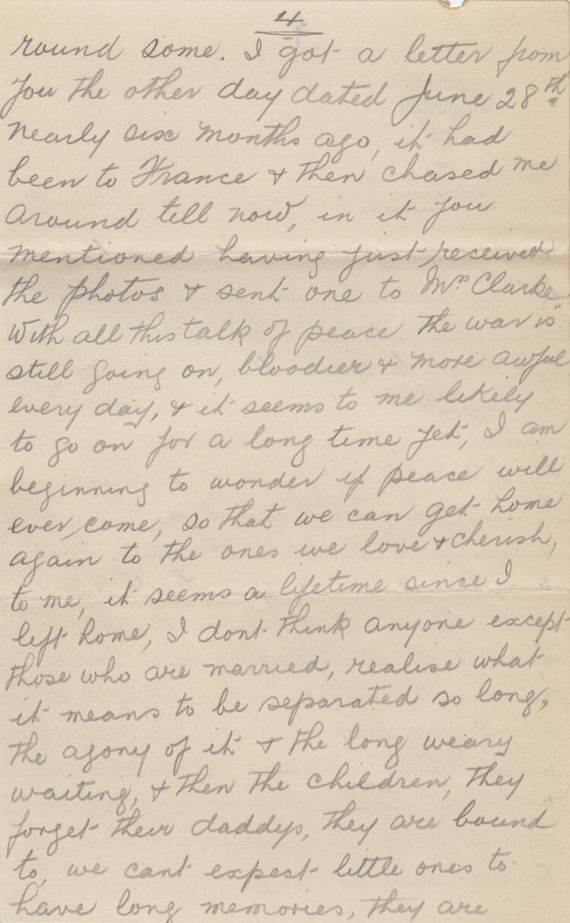 4
round some. I got a letter from
you the other day dated June 28th
nearly six months ago, it had
been to France & then chased me
around tell now, in it you
mentioned having just received
the photos & sent one to Mrs Clarke
With all this talk of peace the war is
still going on, bloodier & more awful
every day, & it seems to me likely
to go on for a long time yet, I am
beginning to wonder if peace will
ever come, so that we can get home
again to the ones we love & cherish,
to me, it seems a lifetime since I
left home, I dont think anyone except
those who are married, realise what
it means to be separated so long,
the agony of it & the long weary
waiting, & then the children, they
forget their daddys, they are bound
to, we cant expect little ones to
have long memories, they are